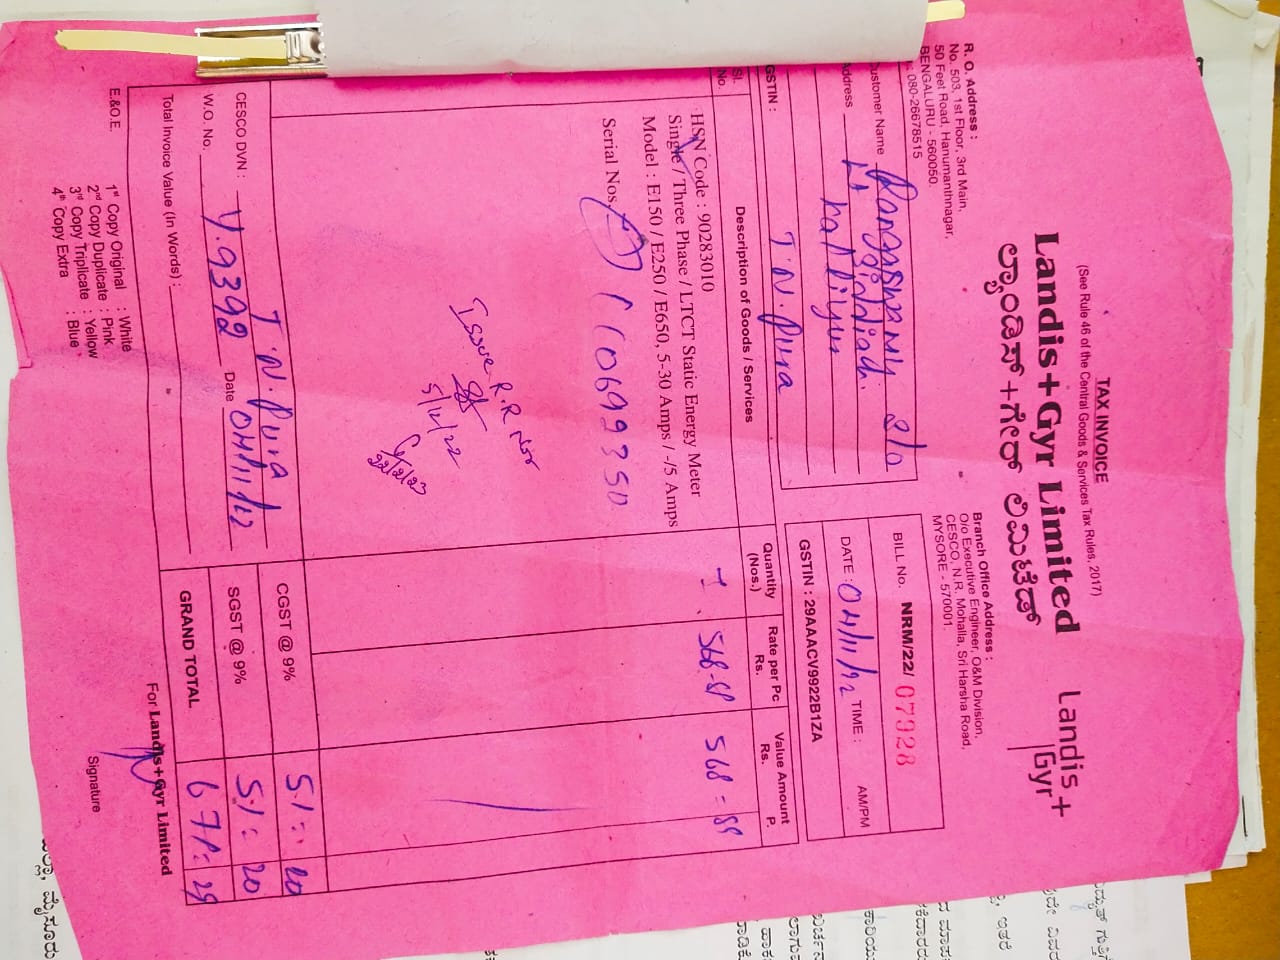 TAX INVOICE
(See Rule 46 of the Central Goods & Services Tax Rules, 2017)
Landis+Gyr Limited
ಲ್ಯಾಂಡಿಸ್+ಗೇರ್ ಲಿಮಿಟೆಡ್
Landis+
Gyr+
R. O. Address :
No. 503, 1st Floor, 3rd Main,
50 Feet Road, Hanumanthnagar,
BENGALURU - 560050.
: 080-26678515
Branch Office Address :
O/o Executive Engineer, O&M Division,
CESCO, N.R. Mohalla, Sri Harsha Road,
MYSORE - 570001.
ustomer Name Rangaswamy S/o
ddress
T.N. Pura
GSTIN :
BILL No. NRM/22/ 07928
DATE : 04/11/22 TIME : AM/PM
GSTIN : 29AAACV9922B1ZA
Sl. No. Description of Goods / Services Quantity (Nos.) Rate per Pc Rs. Value Amount Rs. P.
HSN Code : 90283010
Single / Three Phase / LTCT Static Energy Meter
Model : E150 / E250 / E650, 5-30 Amps / -/5 Amps
1 568-
568 =
Serial Nos. 10699350
Issue R.R No
5/12/22
22/2/23
CESCO DVN : T.N. Pura
W.O. No. Y.9392 Date 04/11/22
Total Invoice Value (In Words) :
CGST @ 9% 51= 20
SGST @ 9% 51= 20
GRAND TOTAL 671=
E.&O.E.
1st Copy Original : White
2nd Copy Duplicate : Pink
3rd Copy Triplicate : Yellow
4th Copy Extra : Blue
For Landis+Gyr Limited
Signature